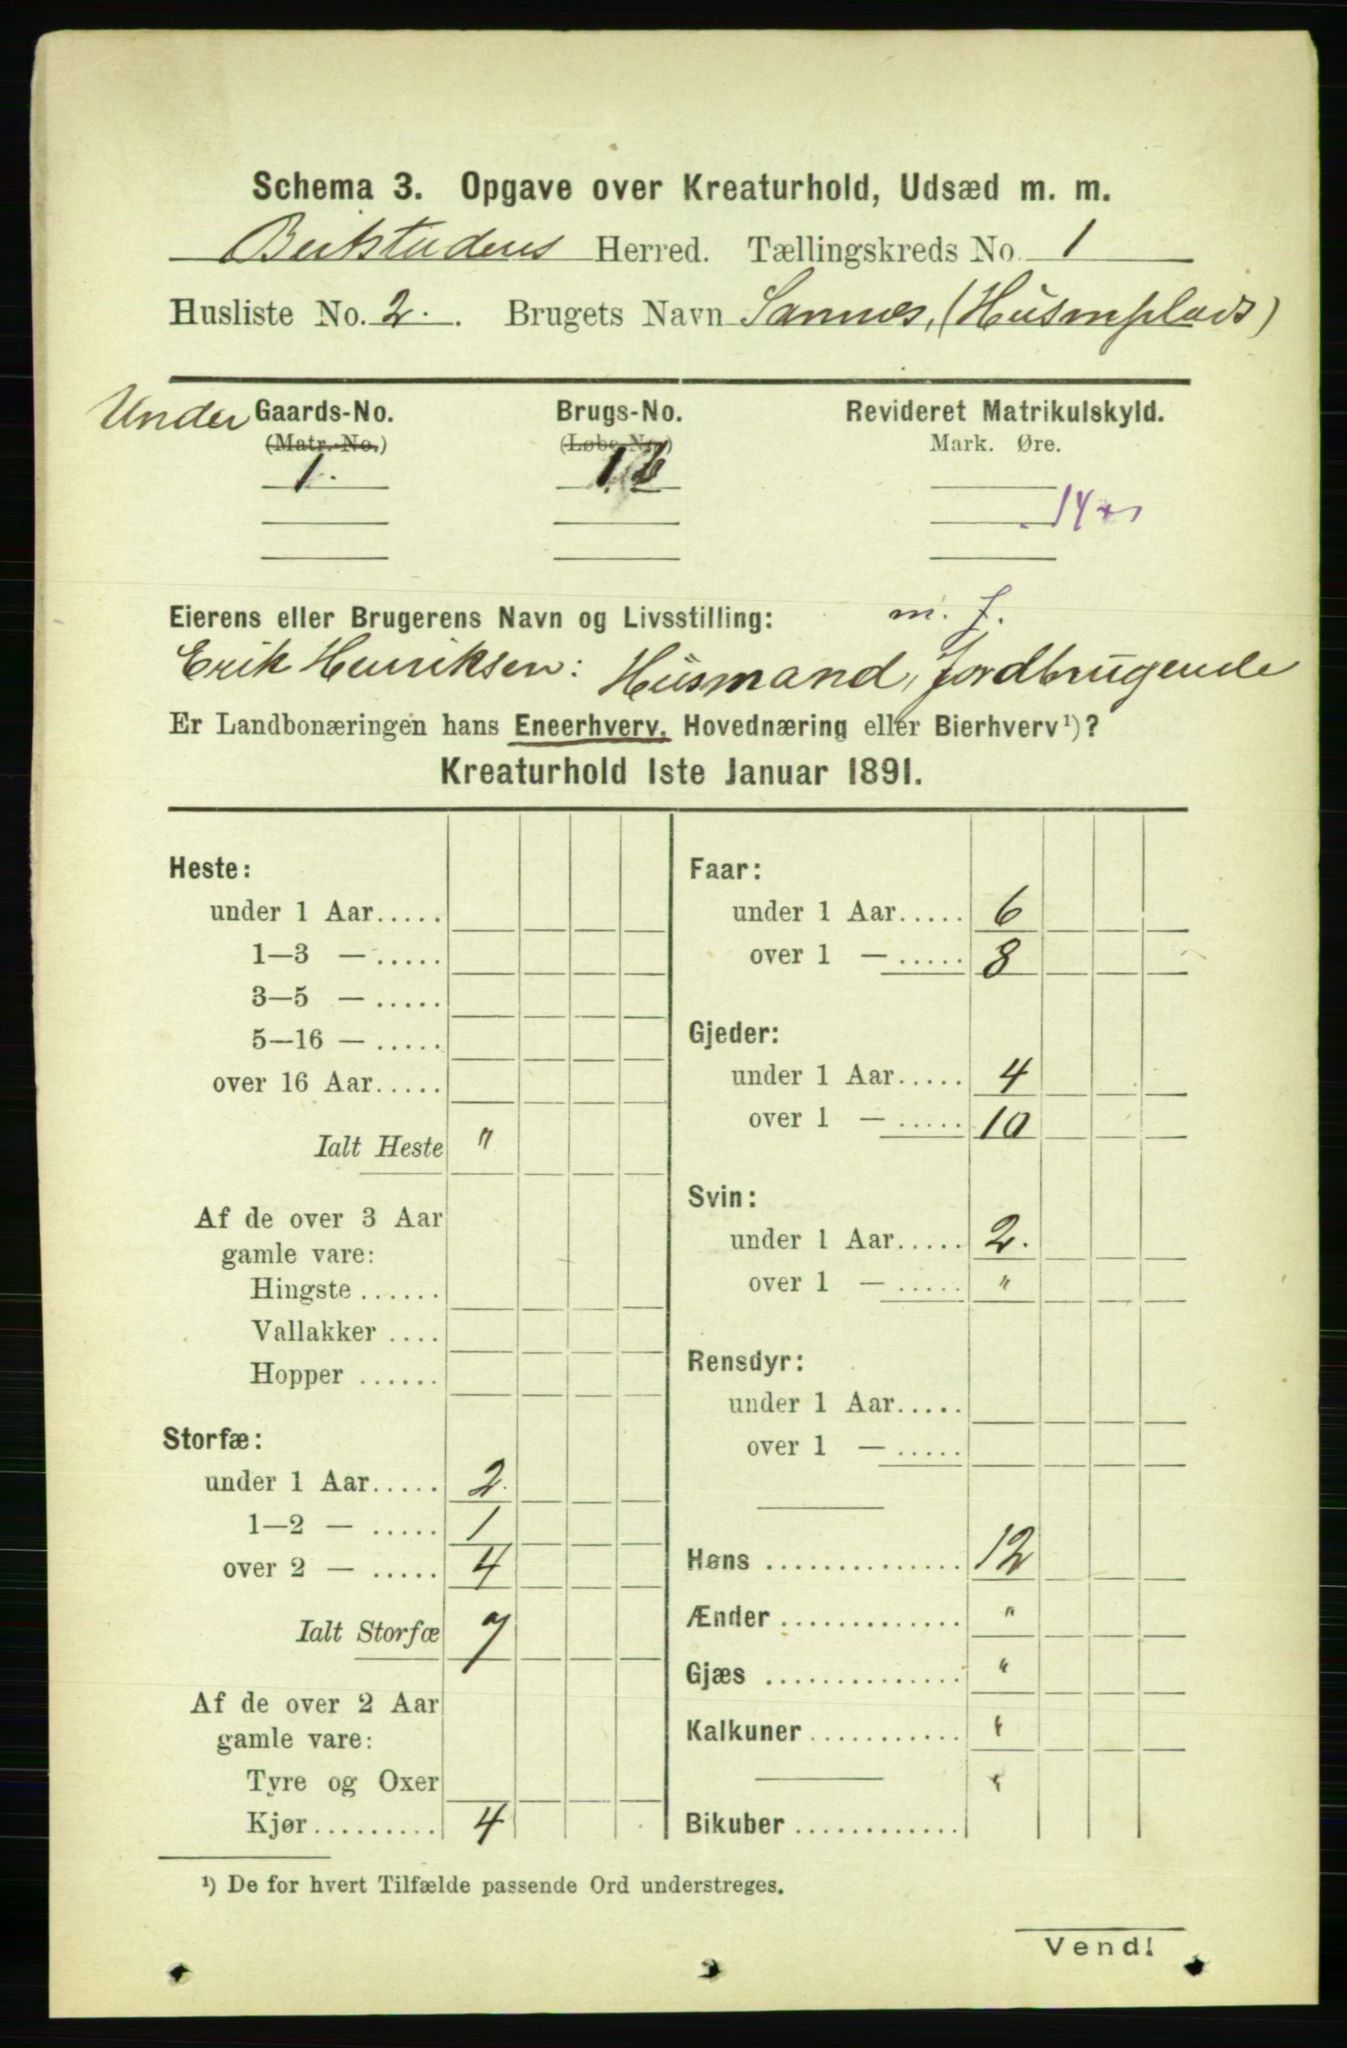 Schema 3. Opgave over Kreaturhold, Udsæd m. m.
Beitstadens Herred. Tællingskreds No. 1
Husliste No. 2. Brugets Navn Sannes, (Husmplads)
Under Gaards-No. Brugs-No. Revideret Matrikulskyld.
(Matr.-No.) (Løbe-No.) Mark. Øre.
1.
m. J.
Eierens eller Brugerens Navn og Livsstilling:
Erik Henriksen: Husmand, Jordbrugende
Er Landbonæringen hans Eneerhverv, Hovednæring eller Bierhverv¹)?
Kreaturhold 1ste Januar 1891.
Heste:
under 1 Aar.....
1—3 — .....
3—5 — .....
5—16 — .....
over 16 Aar.....
Ialt Heste "
Af de over 3 Aar
gamle vare:
Hingste ......
Vallakker ....
Hopper ......
Storfæ:
under 1 Aar..... 2.
1—2 — ..... 1
over 2 — ..... 4
Ialt Storfæ 7
Af de over 2 Aar
gamle vare:
Tyre og Oxer
Kjør......... 4
Faar:
under 1 Aar..... 6
over 1 — ..... 8
Gjeder:
under 1 Aar..... 4
over 1 — ..... 10
Svin:
under 1 Aar..... 2.
over 1 — ..... "
Rensdyr:
under 1 Aar.....
over 1 — .....
Høns .............. 12
Ænder ............. "
Gjæs .............. "
Kalkuner ............ "
"
Bikuber ............
¹) De for hvert Tilfælde passende Ord understreges.
Vend!